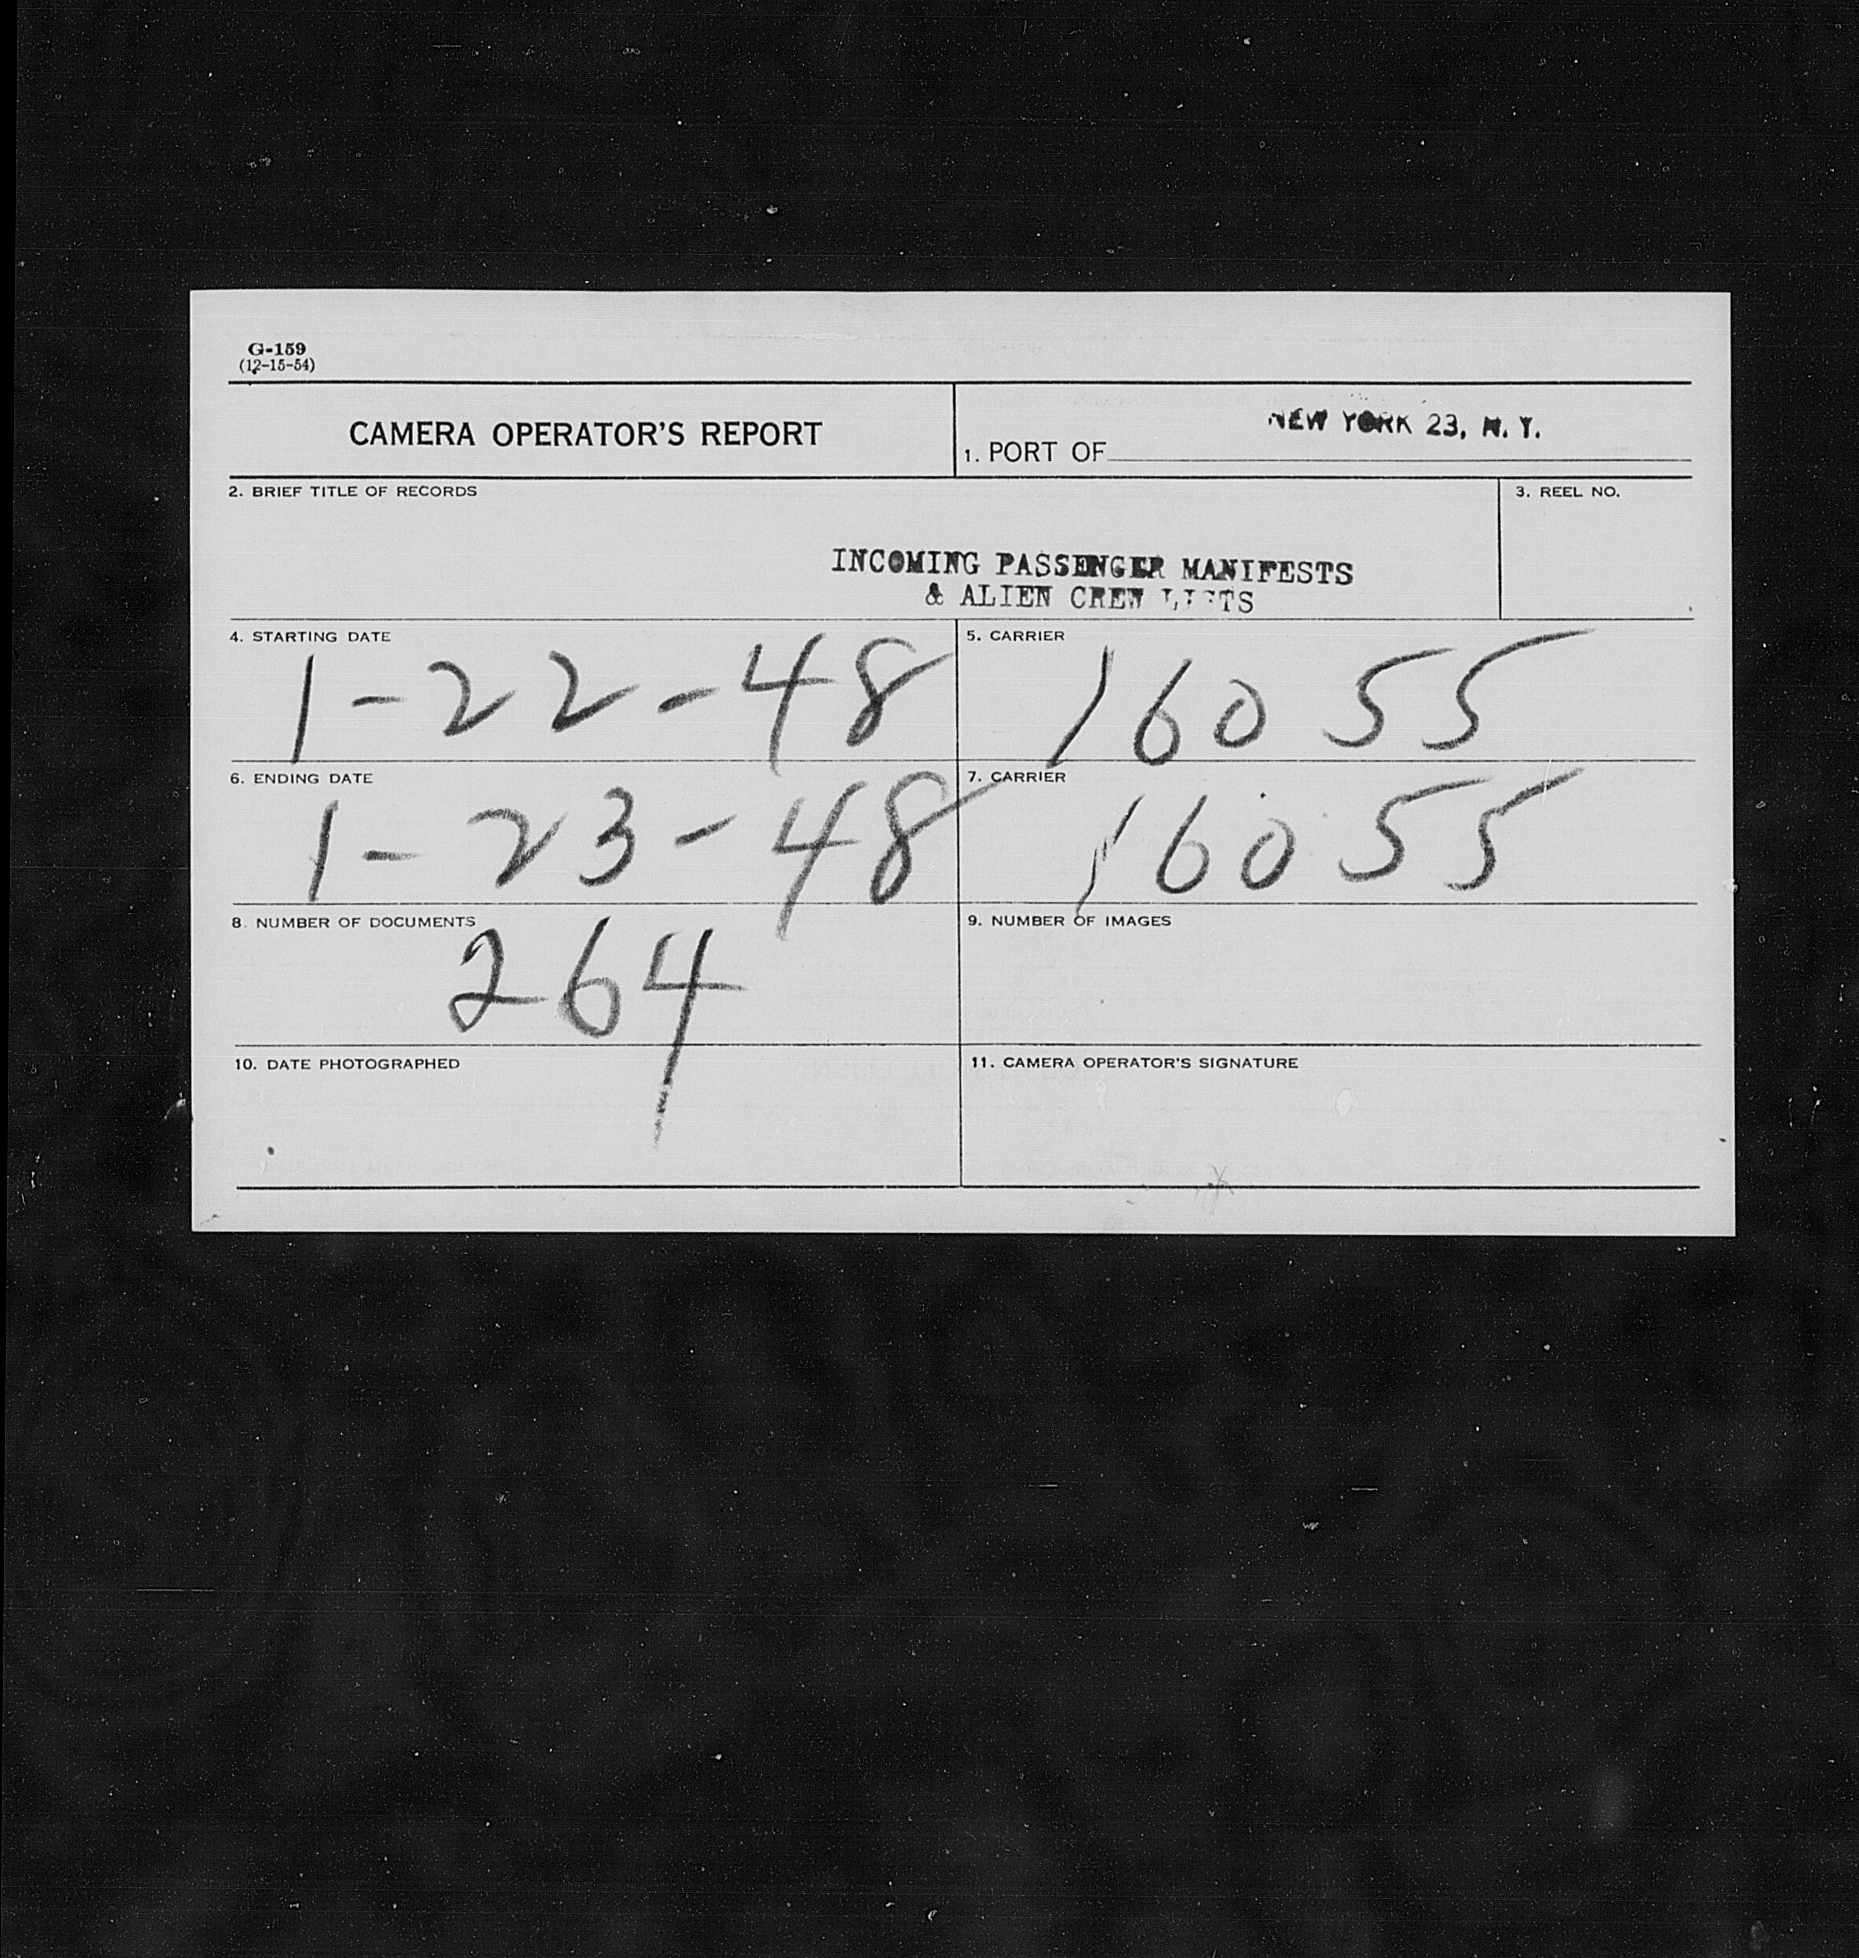 G-159
(12-15-54)
CAMERA OPERATOR'S REPORT
1. PORT OF NEW YORK 23, N. Y.
2. BRIEF TITLE OF RECORDS
INCOMING PASSENGER MANIFESTS
& ALIEN CREW LISTS
3. REEL NO.
4. STARTING DATE
1-22-48
5. CARRIER
16055
6. ENDING DATE
1-23-48
7. CARRIER
16055
8. NUMBER OF DOCUMENTS
264
9. NUMBER OF IMAGES
10. DATE PHOTOGRAPHED
11. CAMERA OPERATOR'S SIGNATURE